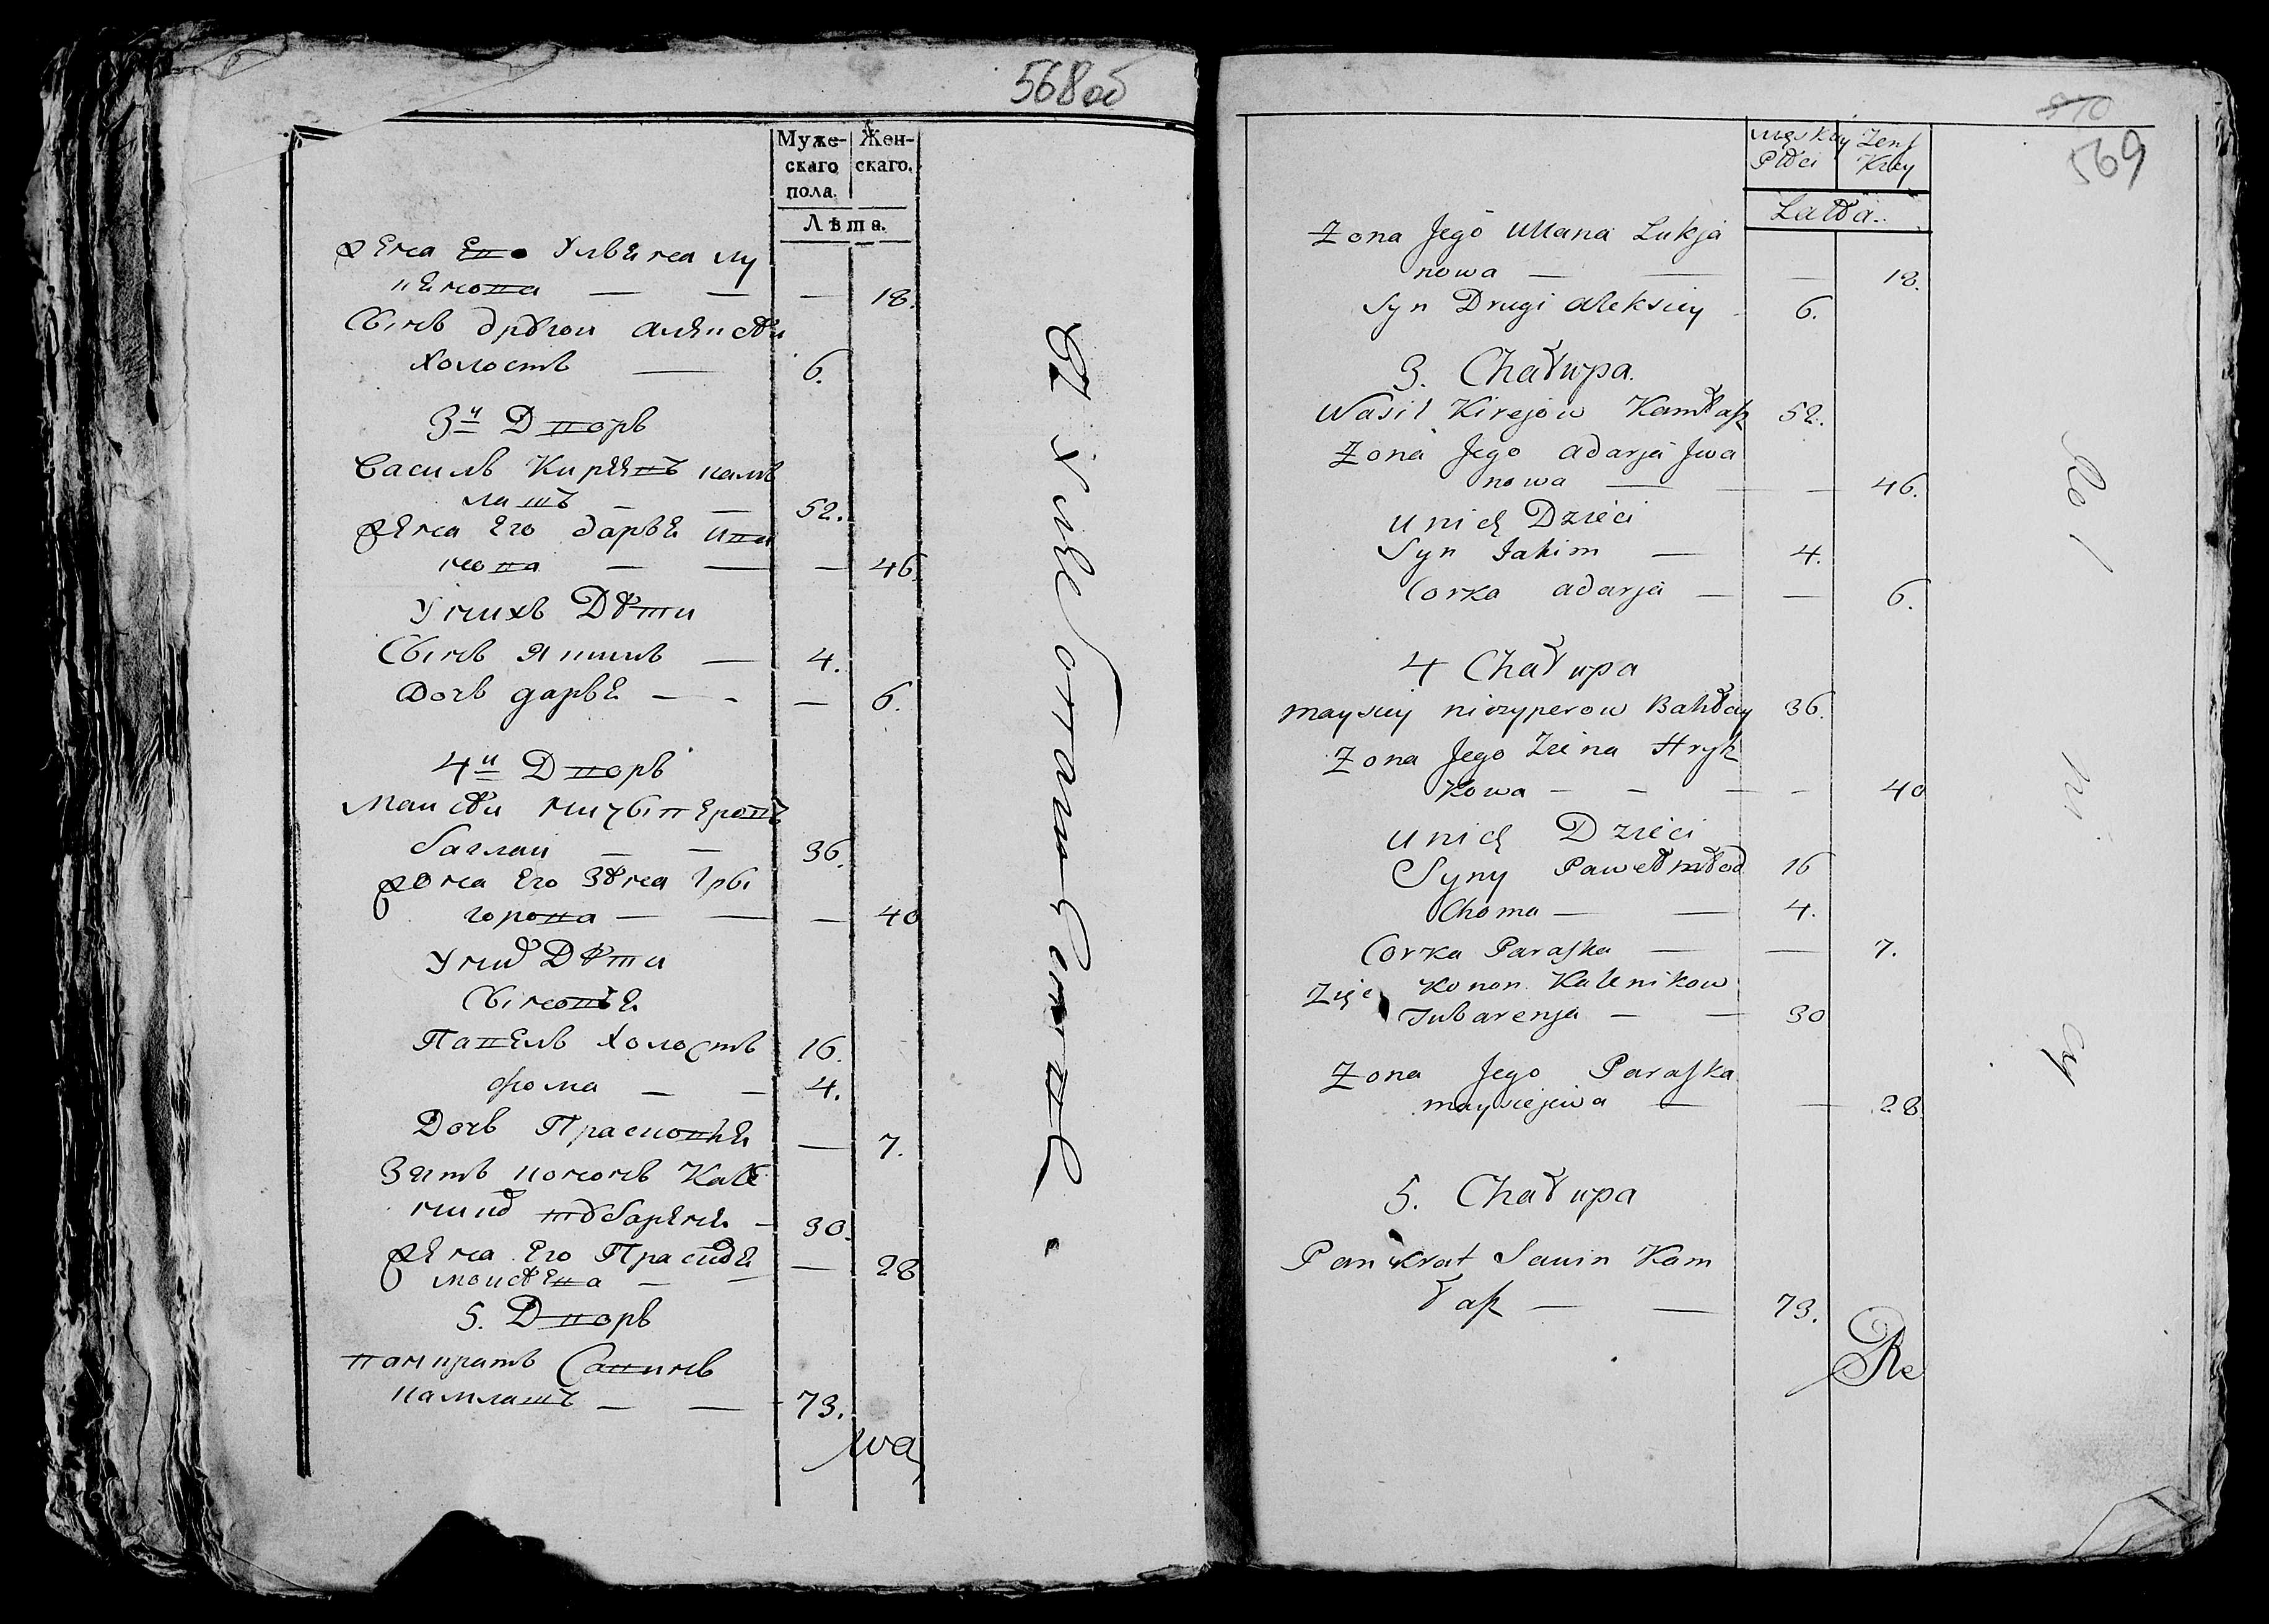 568об
Муже-
скаго
пола.
Жен-
скаго.
Лѣта.
Жена Его Ульяна Лу
кянова — — — 18.
Сынъ другои Алексѣи
холостъ — 6.
3й Дворъ
Василь Кирѣевъ Камъ
лашъ — — 52.
Жена Его Дарья Ива
нова — — — 46.
У нихъ Дѣти
Сынъ Якимъ — 4.
Дочь Дарья — - — 6.
4й Дворъ
Моисѣи Ничыперовъ
Баглаи — — 36.
Жона Его Зѣна Гры
горова — — — 40
У них Дѣти
Сыновья
Павелъ холостъ 16.
Фома — — 4.
Дочь Прасковья — 7.
Зять Кононъ Кале
ник Тубареня — 30.
Жена Его Праскове — 28
Моисѣева — —
5. Дворъ
Панкратъ Савинъ
Камлашъ — — 73.
wa
570
569
męskiey
Płci
Żeńs
Kiey
Lałta.
Zona Jego Ullana Lukja
nowa — — — 18.
Syn Drugi Aleksiey - 6.
3. Chałupa.
Wasil Kirejow Kamłasz 52.
Zona Jego Adarja Jwa
nowa — — — 46.
U nich Dzieci
Syn Jakim — 4.
Corka Adarja — — 6.
4 Chałupa
Maysiey Niczyperow Bahłay 36.
Zona Jego Zieina Hryh
kowa — - — - 40
U nich Dzieci
Syny Paweł młod 16
Choma — — 4.
Corka Paraska — — 7.
Zięc Konon Kalenikow
Tubarenja — — 30
Zona Jego Paraska
maysiejewa — — 28.
5. Chałupa
Pankrat Sawin Kam
łasz — — 73.
Re